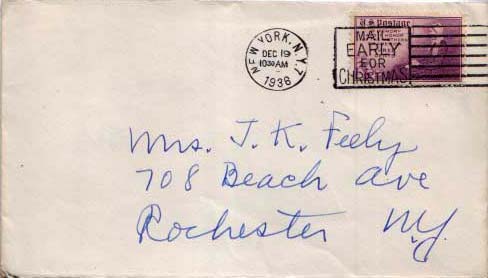 NEW YORK, N.Y. 7
DEC 19
10 30 AM
1938
U.S. Postage
MAIL
EARLY
FOR
CHRISTMAS
Mrs. J. K. Feely
708 Beach Ave
Rochester N.Y.